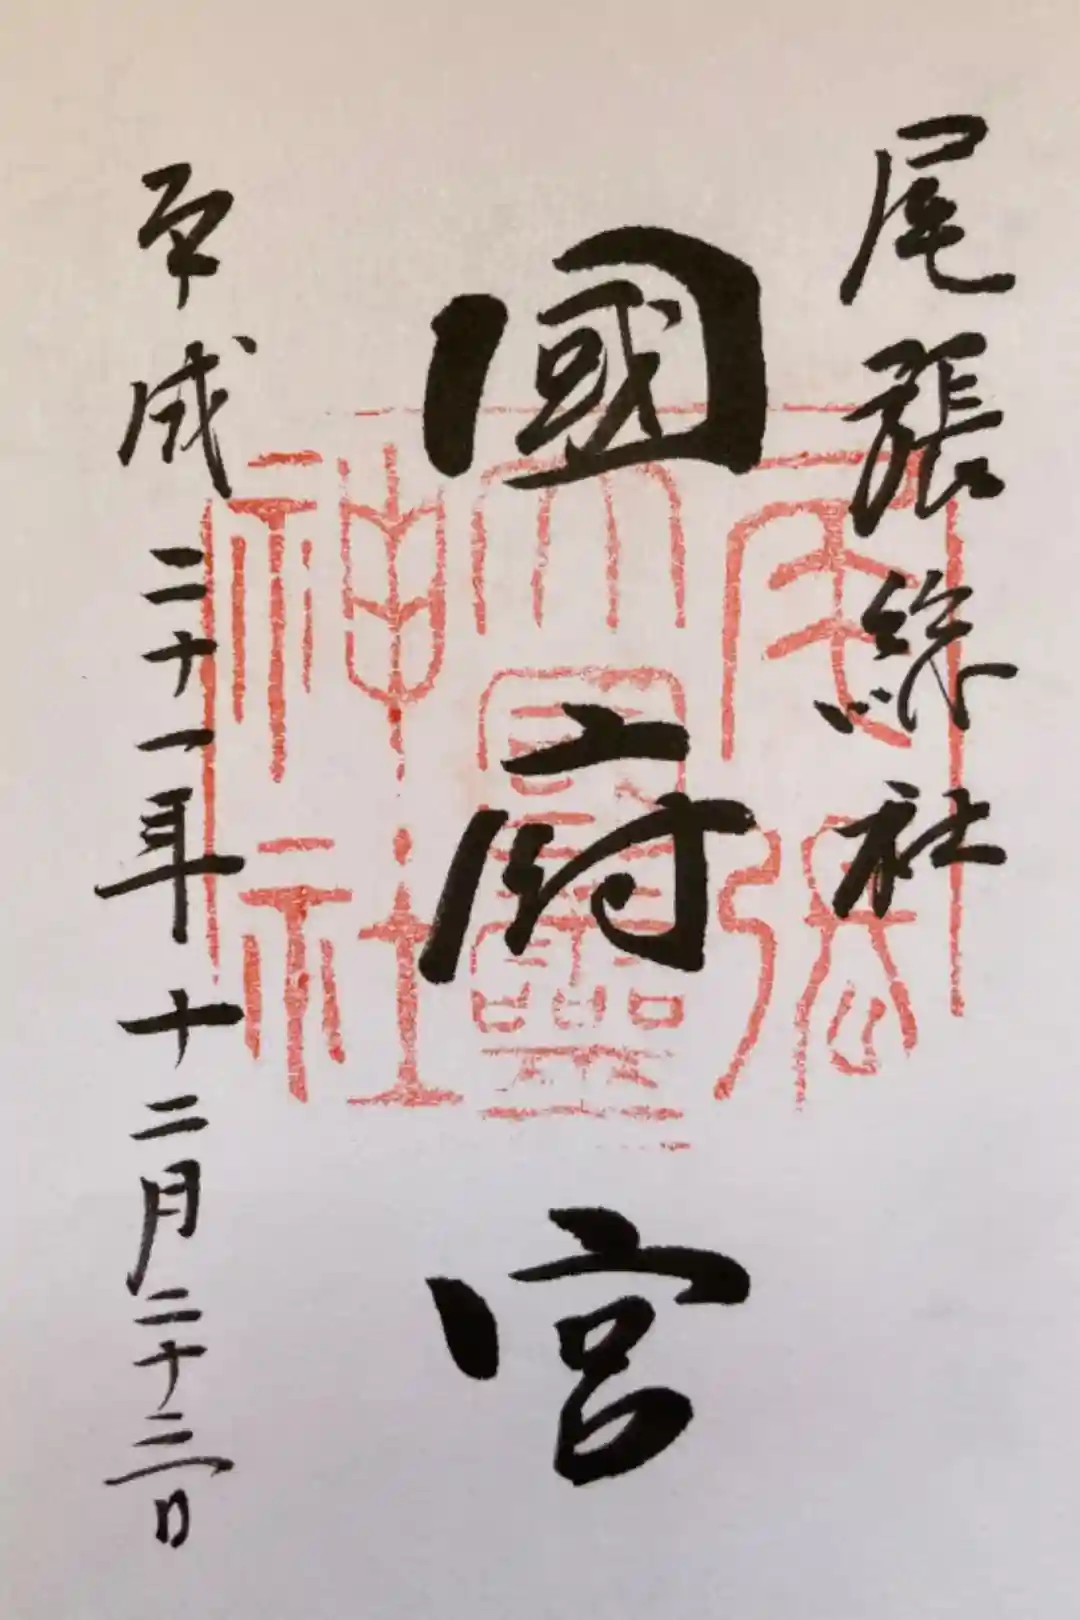 尾張総社
國府宮
平成二十一年十二月二十三日
尾張
大國霊
神社